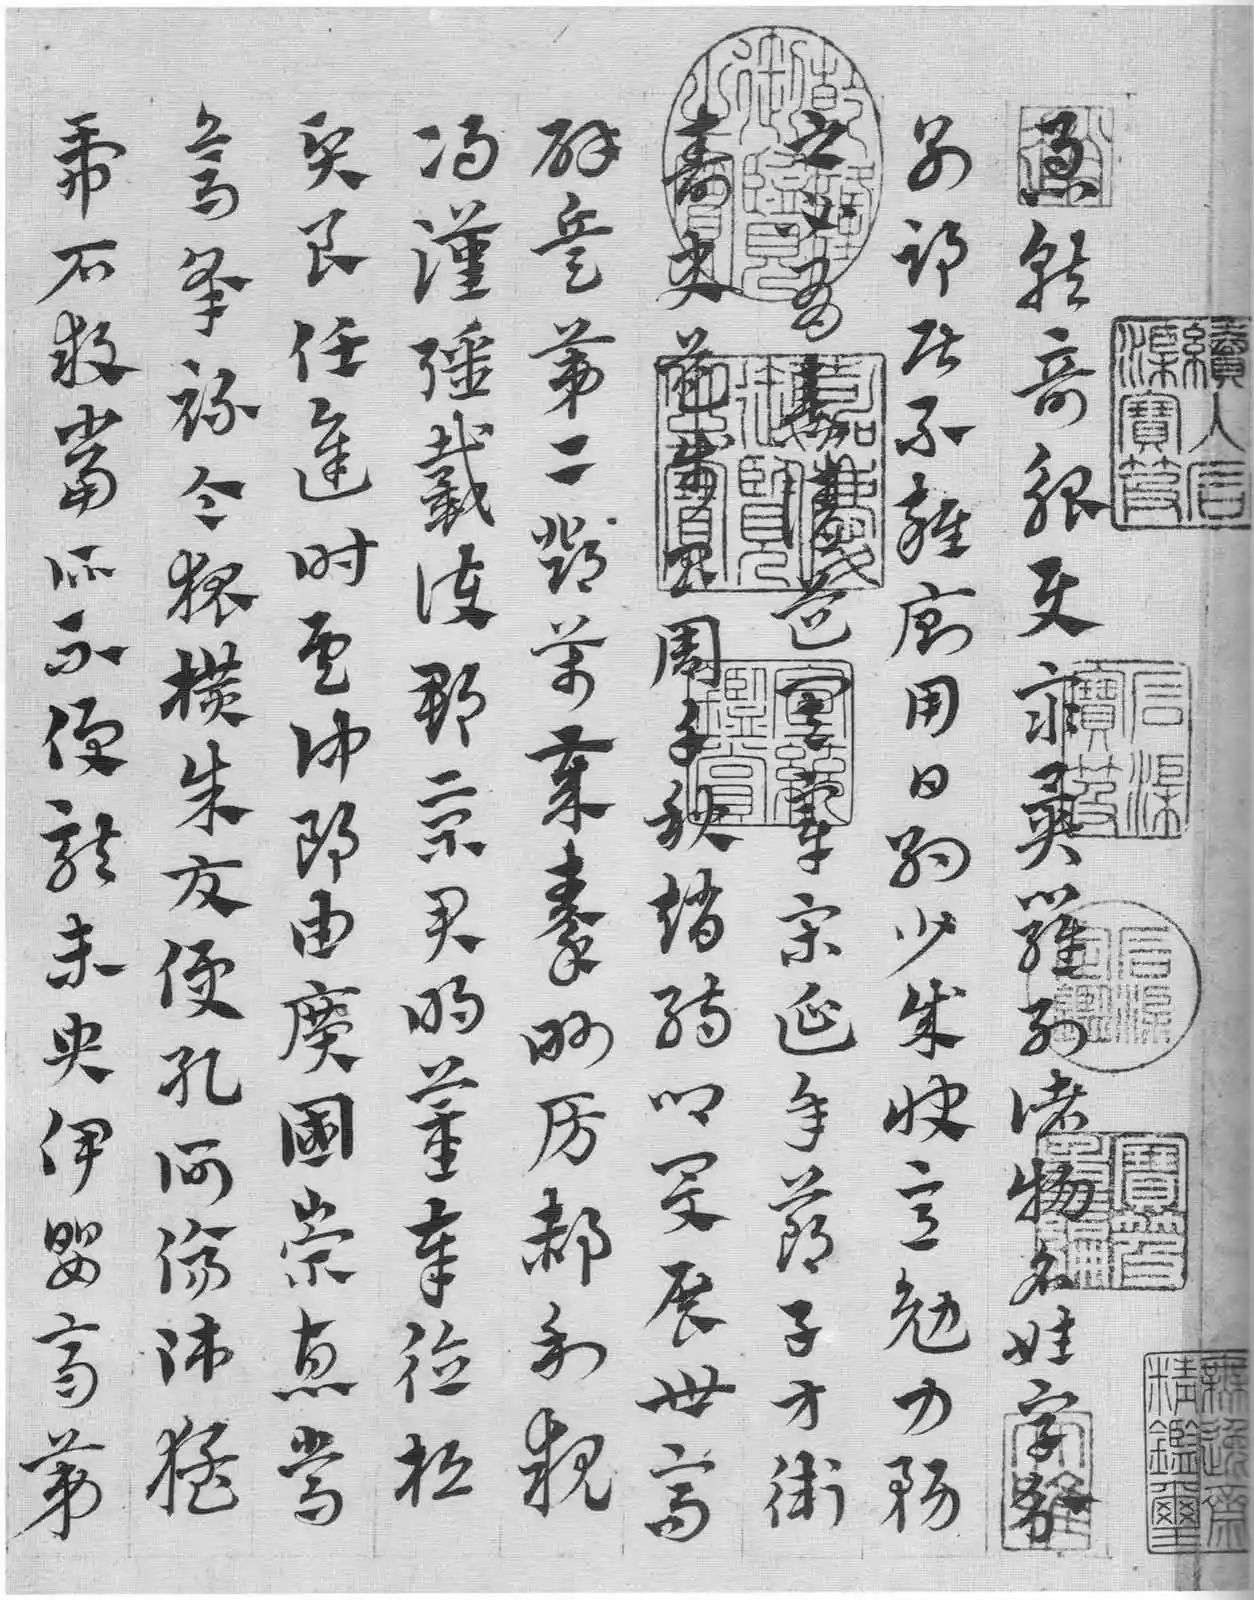 急就奇觚與眾異羅列諸物名姓字分
別部居不雜廁用日約少誠快意勉力務
之必有憙道其章宋延年鄭子方衛
壽史步昌周千秋趙孺卿爰展世高
辟兵第二鄧萬歲秦眇房郝利親
馮漢彊戴護郡景君明董奉德桓
賢良任逢時侯仲郎由廣國榮惠常
烏承祿令狐橫朱交便孔何傷師猛
虎石敢當所不侵龍未央伊嬰齊